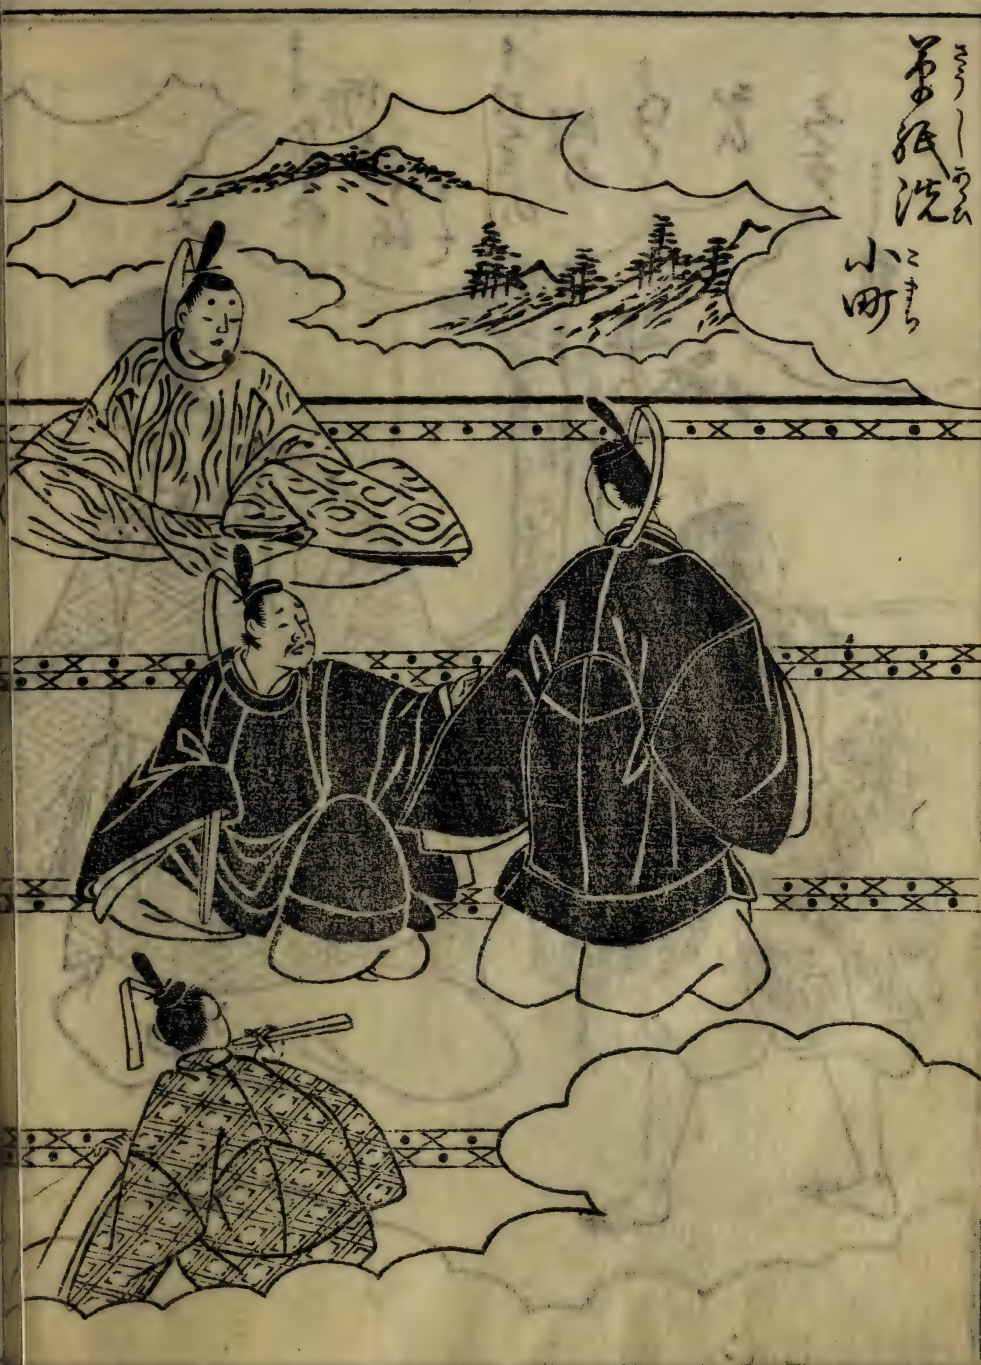 草紙洗
さうしあらひ
小町
こまち